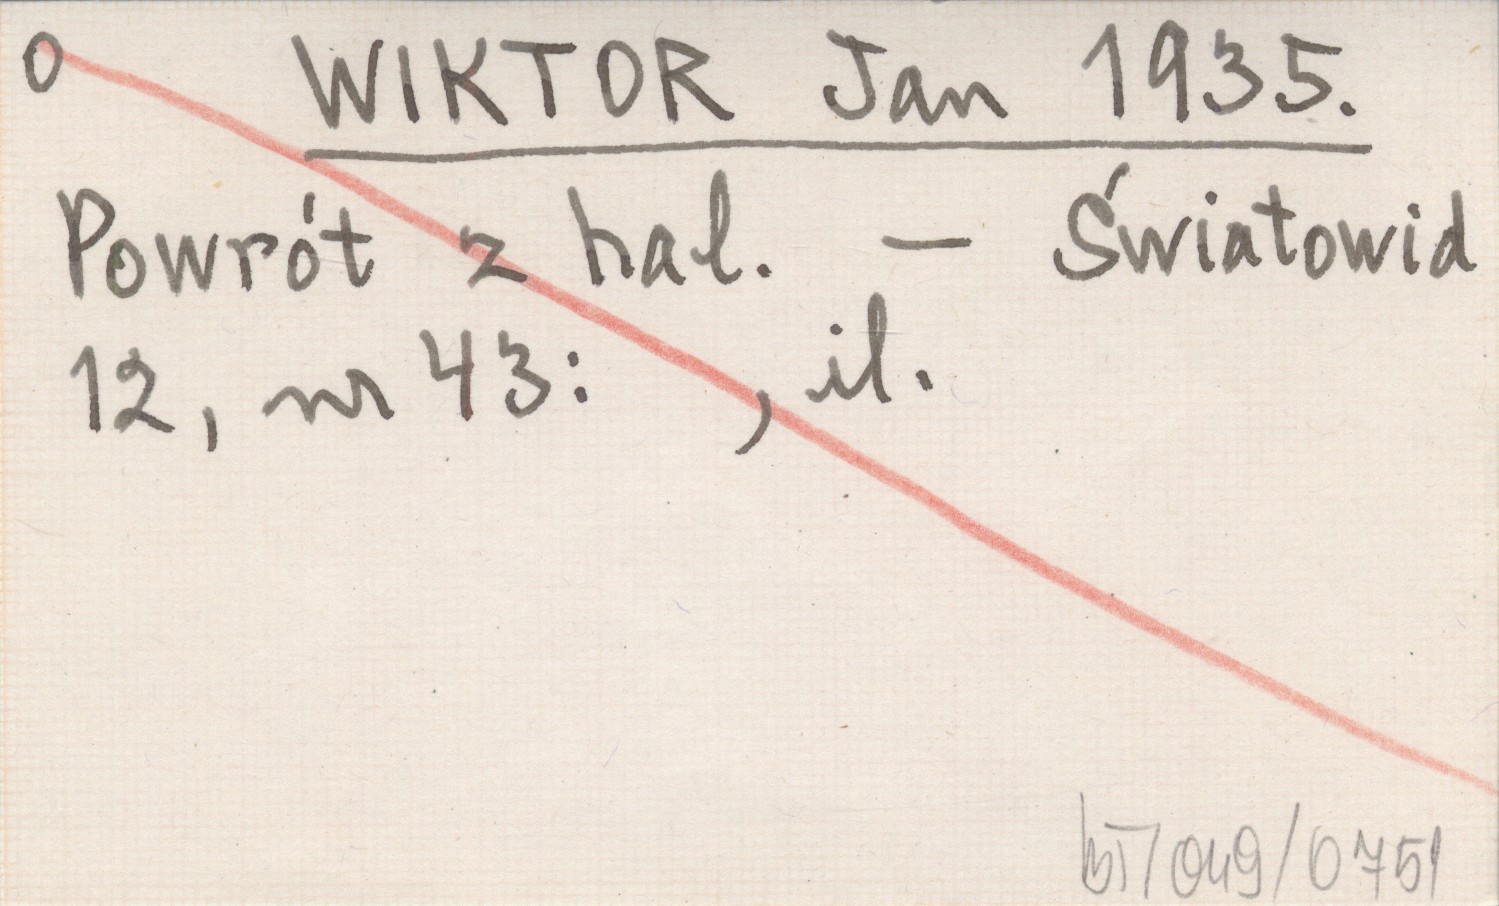 O WIKTOR Jan 1935.
Powrót z hal. — Światowid
12, nr 43: , il.
bT/049/0751